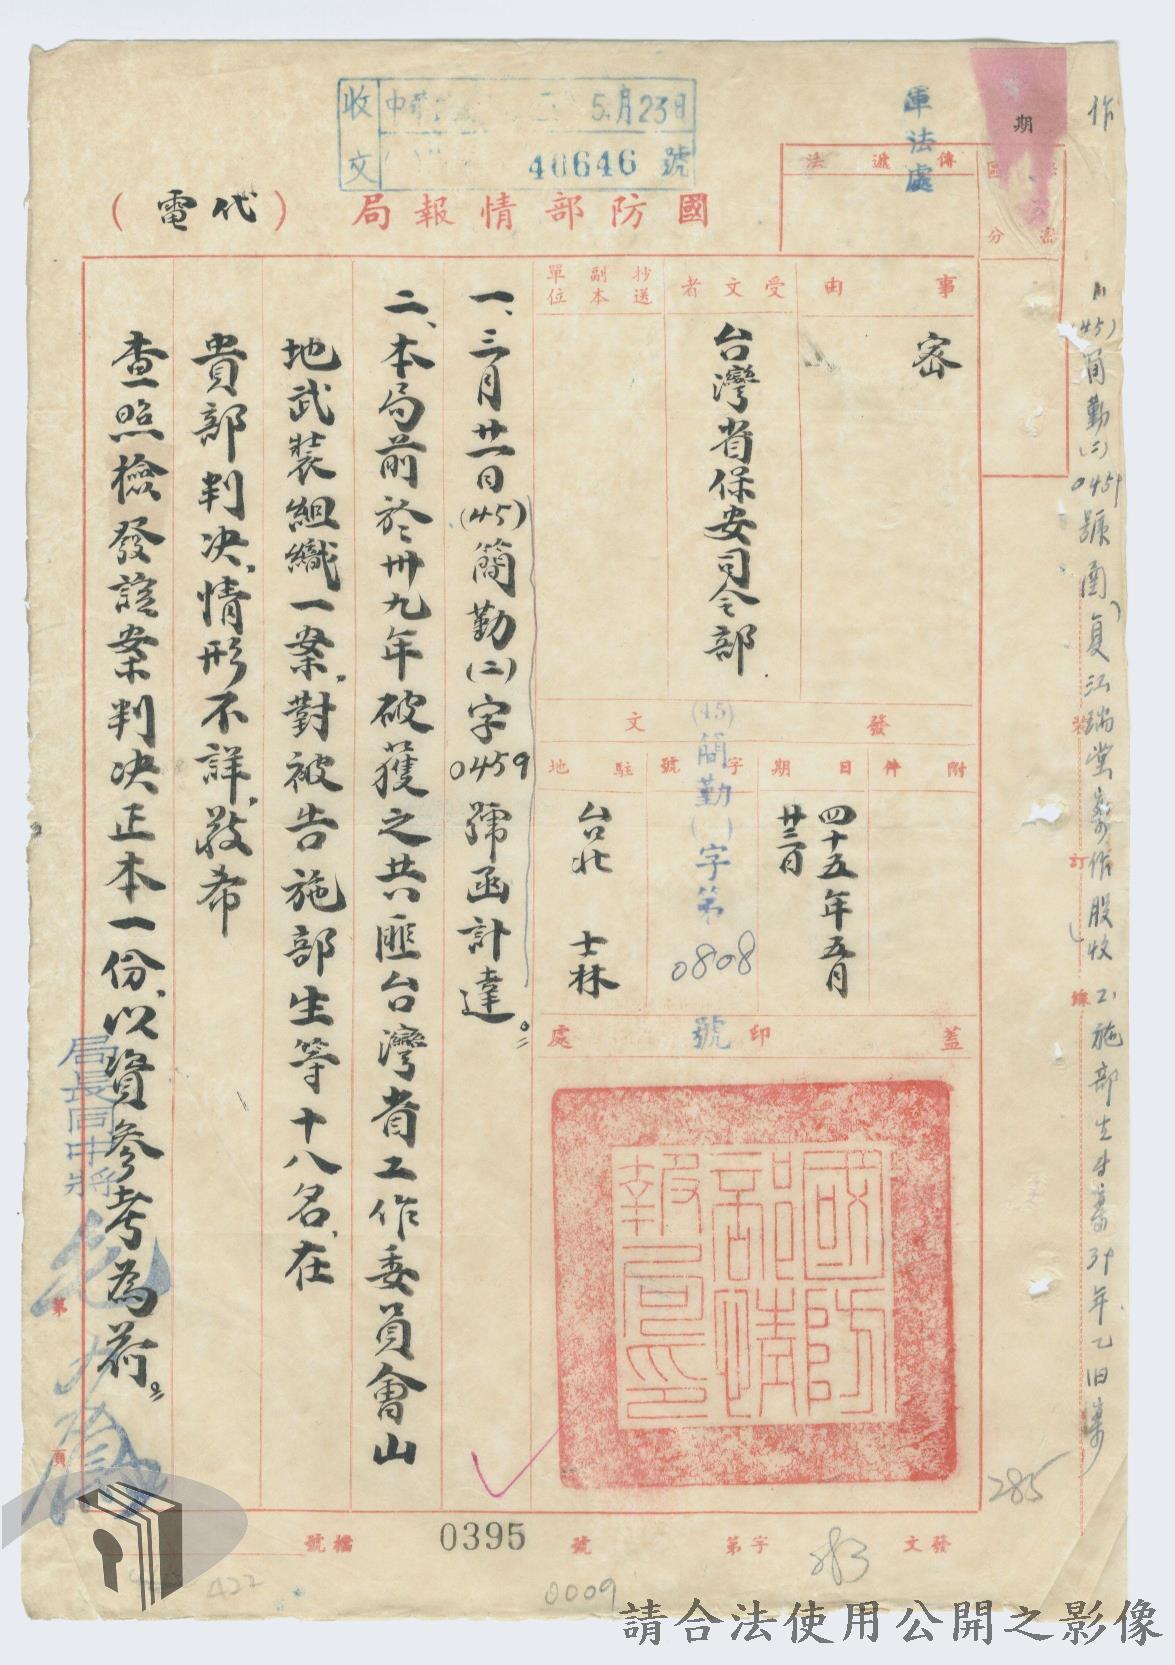 作
(45)簡勤(二)0459號函复江瑞堂
2.施部生
軍法處
收文
中華
5月23日
40646號
國防部情報局
(代電)
傳遞法
期
區分
事由
密
受文者
台灣省保安司令部
抄送副本單位
發文
附件
日期
四十五年五月
廿三日
字號
(45)簡勤( )字第
0808
號
駐地
台北 士林
蓋印處
國防部情報局印
一、三月廿一日(45)簡勤(二)字0459號函計達。
二、本局前於卅九年破獲之共匪台灣省工作委員會山
地武裝組織一案,對被告施部生等十八名,在
貴部判決,情形不詳,敬希
查照檢發該案判決正本一份,以資參考為荷。
局長
中將
裝
訂
線
第
頁
285
發文
字第
283
號
0395
檔號
0009
422
請合法使用公開之影像